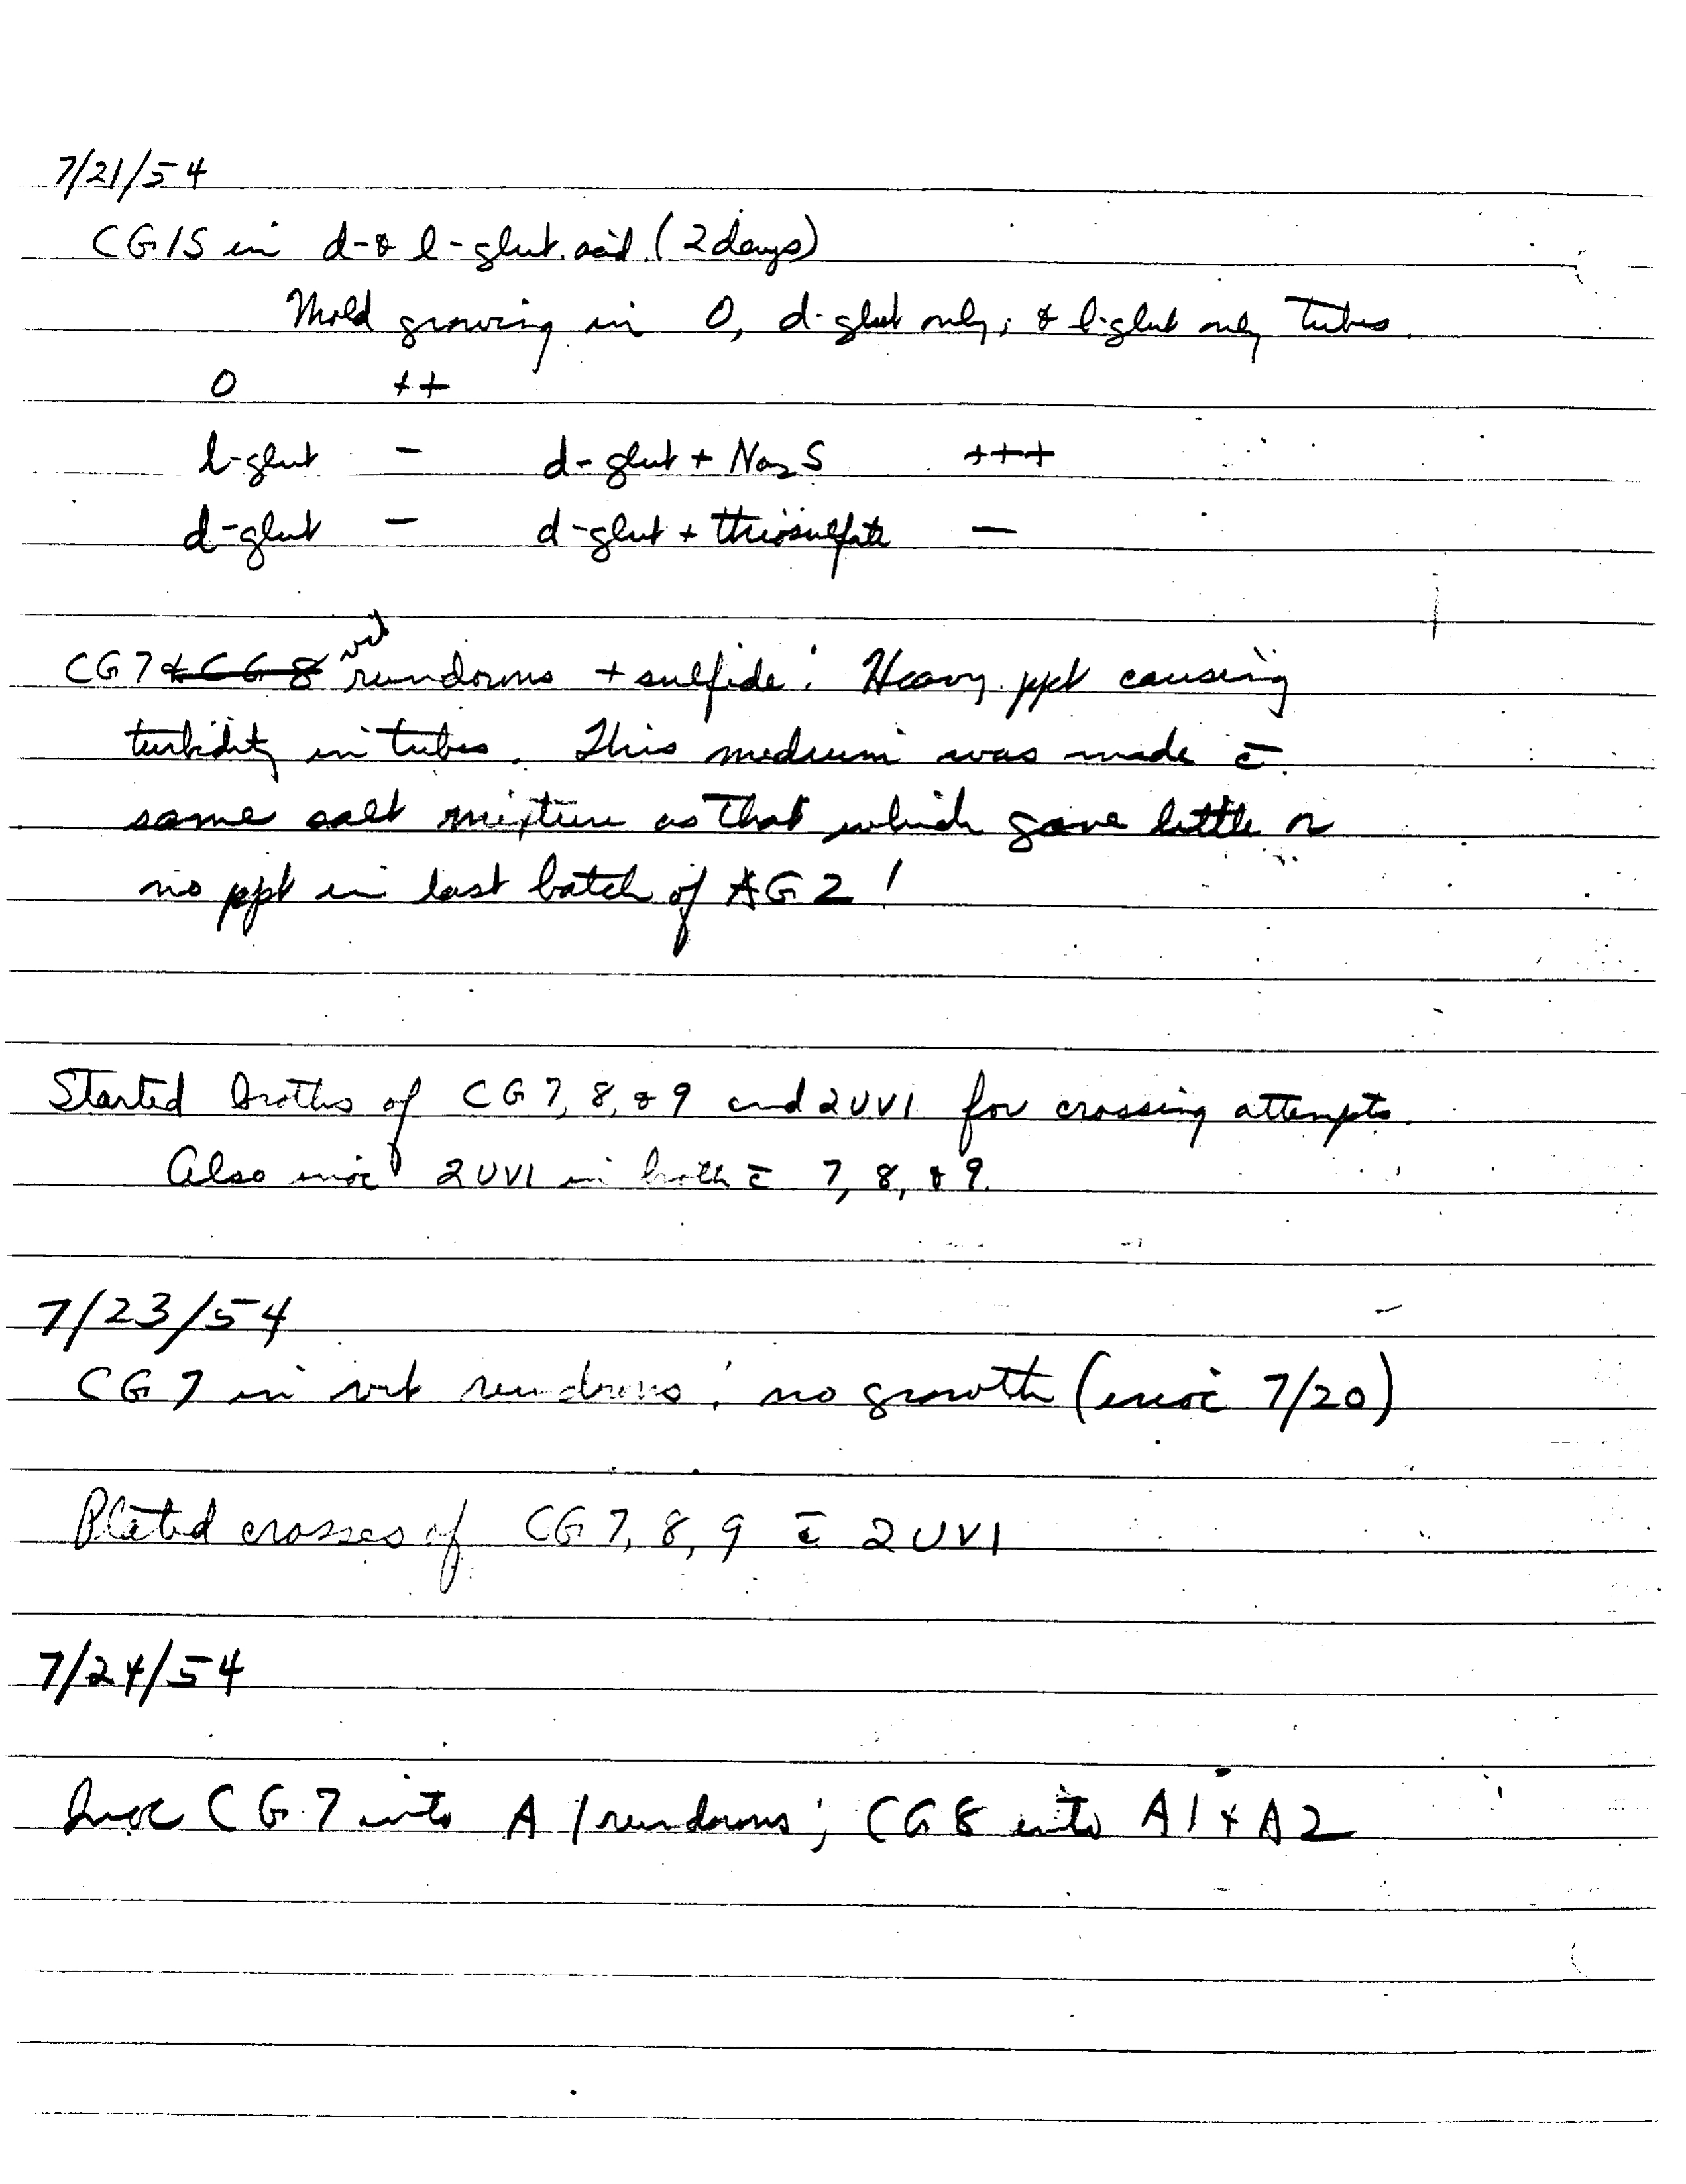 7/21/54
CG15 in d- & l-glut. acid. (2 days)
Mold growing in 0, d-glut only; & l-glut only tubes.
0 ++
l-glut - d-glut + Na2S +++
d-glut - d-glut + thiosulfate -
vit
CG7 & CG8 rundowns + sulfide: Heavy ppt causing
turbidity in tubes. This medium was made c̄
same salt mixture as that which gave little or
no ppt in last batch of AG2!
Started broths of CG7, 8, & 9 and 2UV1 for crossing attempts.
Also inoc 2UV1 in broth c̄ 7, 8, & 9.
7/23/54
CG7 in vit rundowns: no growth (inoc 7/20)
Plated crosses of CG7, 8, 9 c̄ 2UV1
7/24/54
Inoc CG7 into A1 rundowns; CG8 into A1 & A2